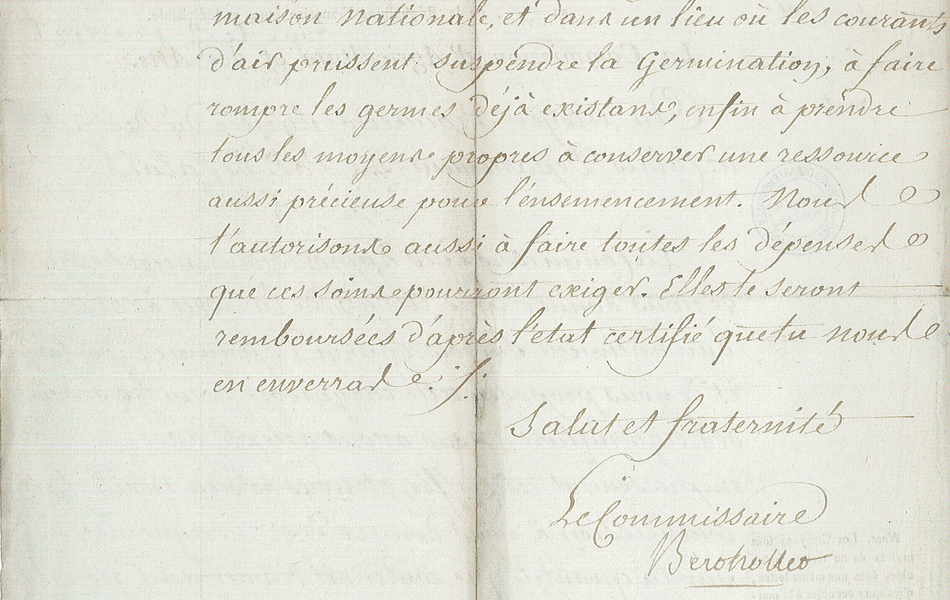 maison Nationale, et dans un lieu où les courants
d'air puissent suspendre la Germination, à faire
rompre les germes déjà existans, enfin à prendre
tous les moyens propres à conserver une ressource
aussi précieuse pour l'ensemencement. Nous
t'autorisons aussi à faire toutes les dépenses
que ces soins pourront exiger. Elles te seront
remboursées d'après l'état certifié que tu nous
en enverras ./.
Salut et fraternité
Le Commissaire
Berthollet